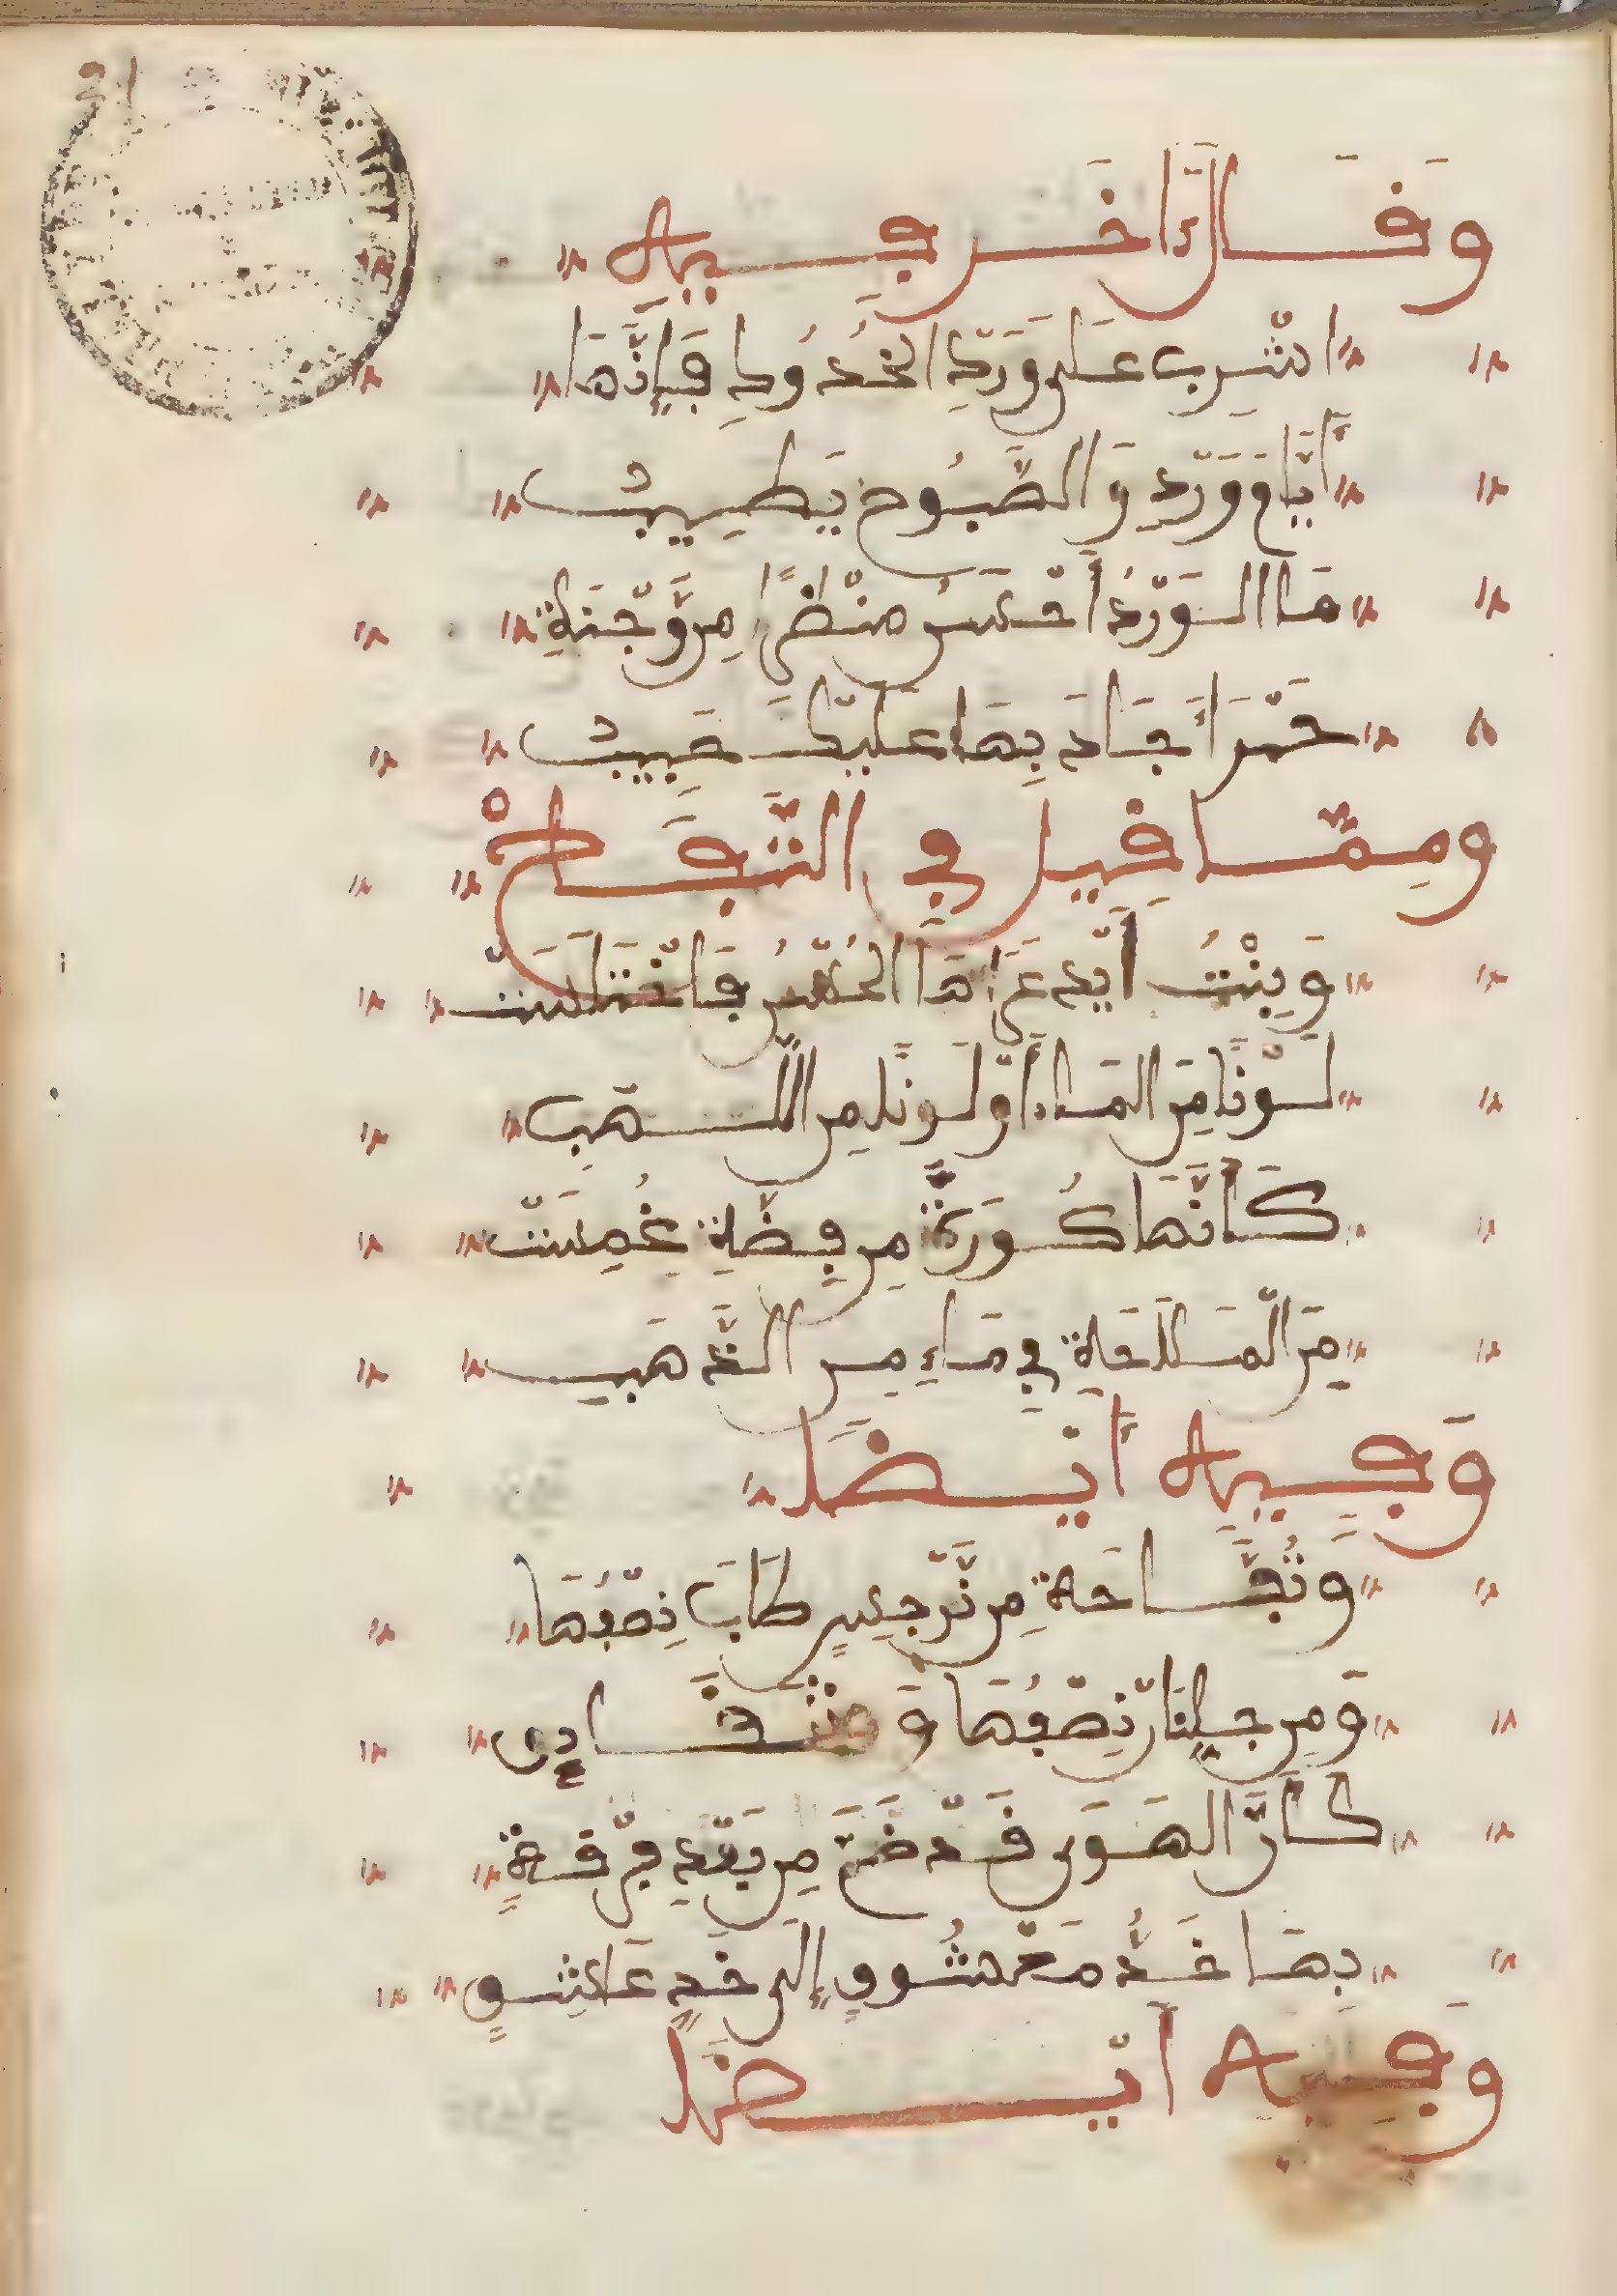 وَقَالَ ءَاخَر فِيهِ
اشْرِب عَلَى وَرْدِ الخُدُودِ فَإِنَّهَا
أَيَّام وَرْدٍ وَالصَّبُوحُ يَطِيبُ
مَا الوَرْدُ أَحْسَنُ مَنْظَرًا مِن وَّجْنَةٍ
حَمْرَا جَادَ بِهَا عَلَيْكَ حَبِيبُ
وَمِمَّا قِيلَ فِي التُّفَّاحْ
وَبِنْتُ الحُسْنُ فَاخْتَلَسَتْ
لَوْنًا مِنَ المَاءِ أَوْ لَوْنًا مِنَ اللَّهَبِ
كَأَنَّهَا كُورَةٌ مِن فِضَّةٍ غُمِسَتْ
مِنَ الْمَلَاحَةِ فِي مَاءٍ مِنَ الذَّهَبِ
وَفِيهِ أَيْضًا
وَتُفَّاحَةٍ مِن نَّرْجِسٍ طَابَ نِصْفُهَا
وَمِن جُلَّنَارٍ نِصْفُهَا
كَأَنَّ الهَوَى قَدْ ضَمَّ مِن بَعْدِ فُرْقَةٍ
بِهَا خَدُّ مَعْشُوقٍ إِلَى خَدِّ عَاشِقٍ
وَفِيهِ أَيْضًا